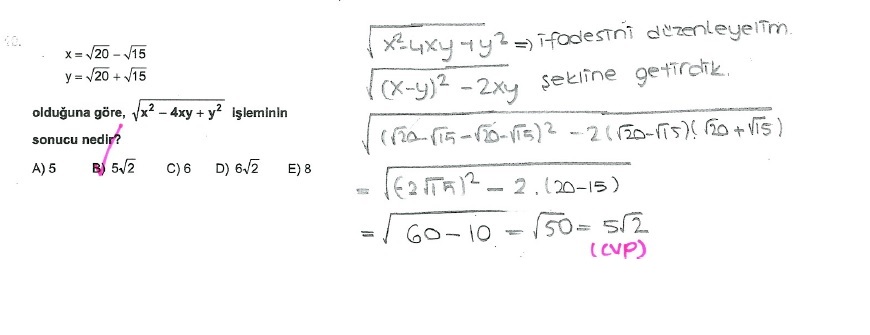 x = √20 − √15
y = √20 + √15
olduğuna göre, √x² − 4xy + y² işleminin
sonucu nedir?
A) 5 B) 5√2 C) 6 D) 6√2 E) 8
√x²-4xy+y² => ifadesini düzenleyelim.
√(x-y)² - 2xy şekline getirdik.
√(√20-√15-√20-√15)² - 2(√20-√15)(√20+√15)
= √(-2√15)² - 2.(20-15)
= √60-10 = √50 = 5√2
(CVP)